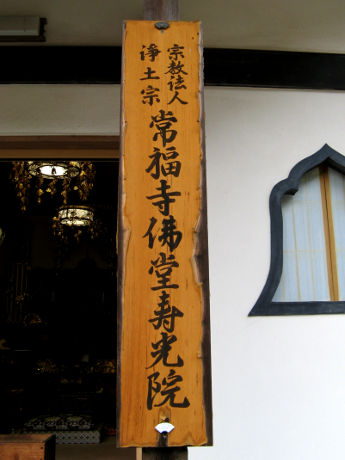 宗教法人
浄土宗
常福寺佛堂寿光院